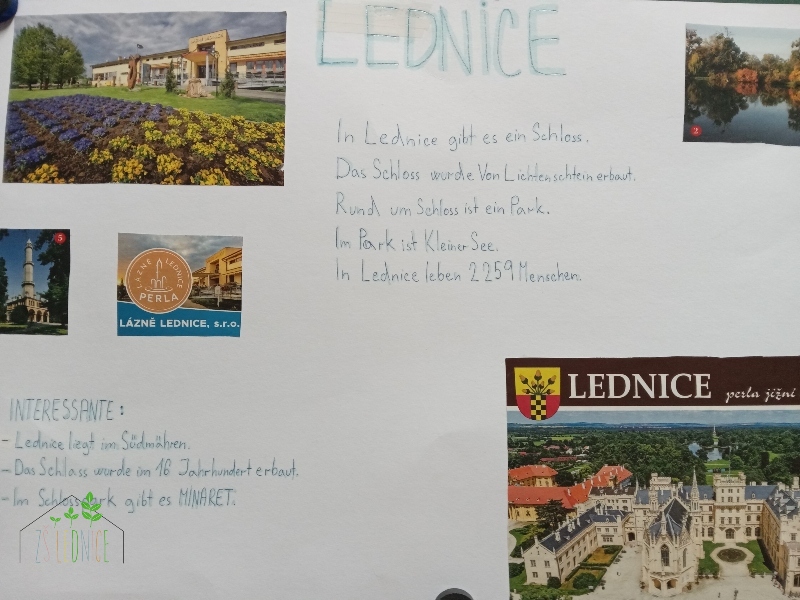 LEDNICE
2
In Lednice gibt es ein Schloss.
Das Schloss wurde Von Lichtenschtein erbaut.
Rund um Schloss ist ein Park.
Im Park ist Kleiner See.
In Lednice leben 2259 Menschen.
5
LÁZNĚ LEDNICE
PERLA
LÁZNĚ LEDNICE, s.r.o.
LEDNICE perla jižní
INTERESSANTE:
- Lednice liegt im Südmähren.
- Das Schlass wurde im 16 Jahrhundert erbaut.
- Im Schlosspark gibt es MINARET.
ZŠ LEDNICE